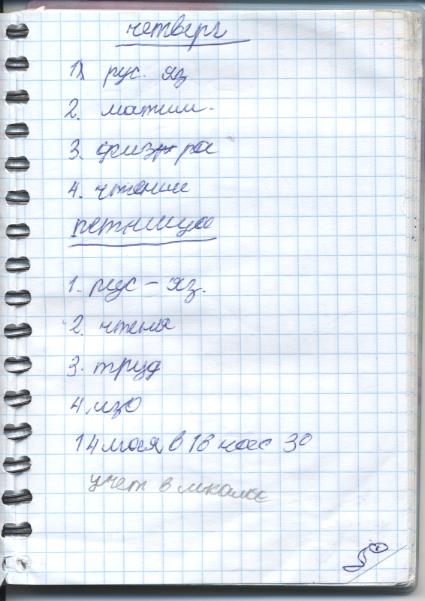 четверг
1) рус. яз
2. матем.
3. физ-ра
4. чтение
петница
1. рус - яз.
2. чтеня
3. труд
4. изо
14 мая, в 16 час 30
учет в школе